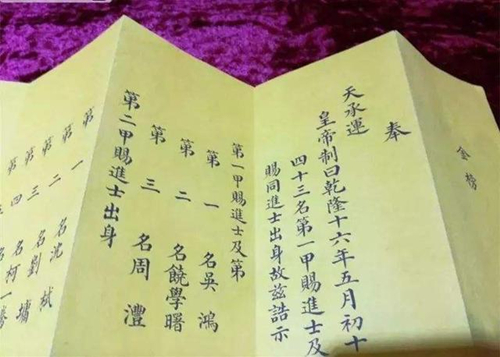 金榜
奉
天承運
皇帝制曰乾隆十六年五月初十
四十三名第一甲賜進士及
賜同進士出身故茲誥示
第一甲賜進士及第
第一名吳鴻
第二名饒學曙
第三名周澧
第二甲賜進士出身
第一名沈栻
第二名劉墉
第三名柯一騰
第四
第